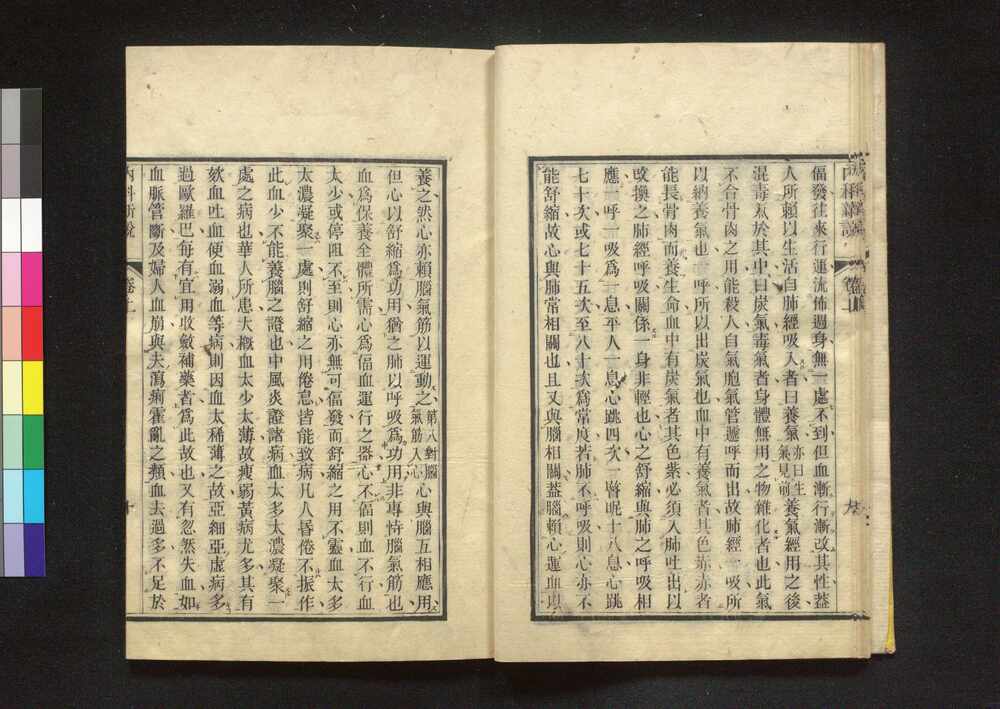 偪發往來行運流佈週身無一處不到但血漸行漸改其性蓋
人所賴以生活自肺經吸入者曰養氣亦曰生氣見前養氣經用之後
混毒氣於其中曰炭氣毒氣者身體無用之物雜化者也此氣
不合骨肉之用能殺人自氣胞氣管遞呼而出故肺經一吸所
以納養氣也一呼所以出炭氣也血中有養氣者其色赤赤者
能長骨肉而養生命血中有炭氣者其色紫必須入肺吐出以
改換之肺經呼吸關係一身非輕也心之舒縮與肺之呼吸相
應一呼一吸爲一息平人一息心跳四次一瞀呢十八息心跳
七十次或七十五次至八十次爲常度若肺不呼吸則心亦不
能舒縮故心與肺常相關也且又與腦相關蓋腦賴心運血以
養之然心亦賴腦氣筋以運動之第八對腦氣筋入心心與腦互相應用
但心以舒縮爲功用猶之肺以呼吸爲功用非專恃腦氣筋也
血爲保養全體所需心爲偪血運行之器心不偪則血不行血
太少或停阻不至則心亦無可偪發而舒縮之用不靈血太多
太濃凝聚一處則舒縮之用倦怠皆能致病凡人昏倦不振作
此血少不能養腦之證也中風炎證諸病血太多太濃凝聚一
處之病也華人所患大概血太少太薄故瘦弱黃病尤多其有
欬血吐血便血溺血等病則因血太稀薄之故亞細亞虛病多
過歐羅巴每有宜用收斂補藥者爲此故也又有忽然失血如
血脈管斷及婦人血崩與夫瀉痢霍亂之類血去過多不足於
內科新說
卷上
十